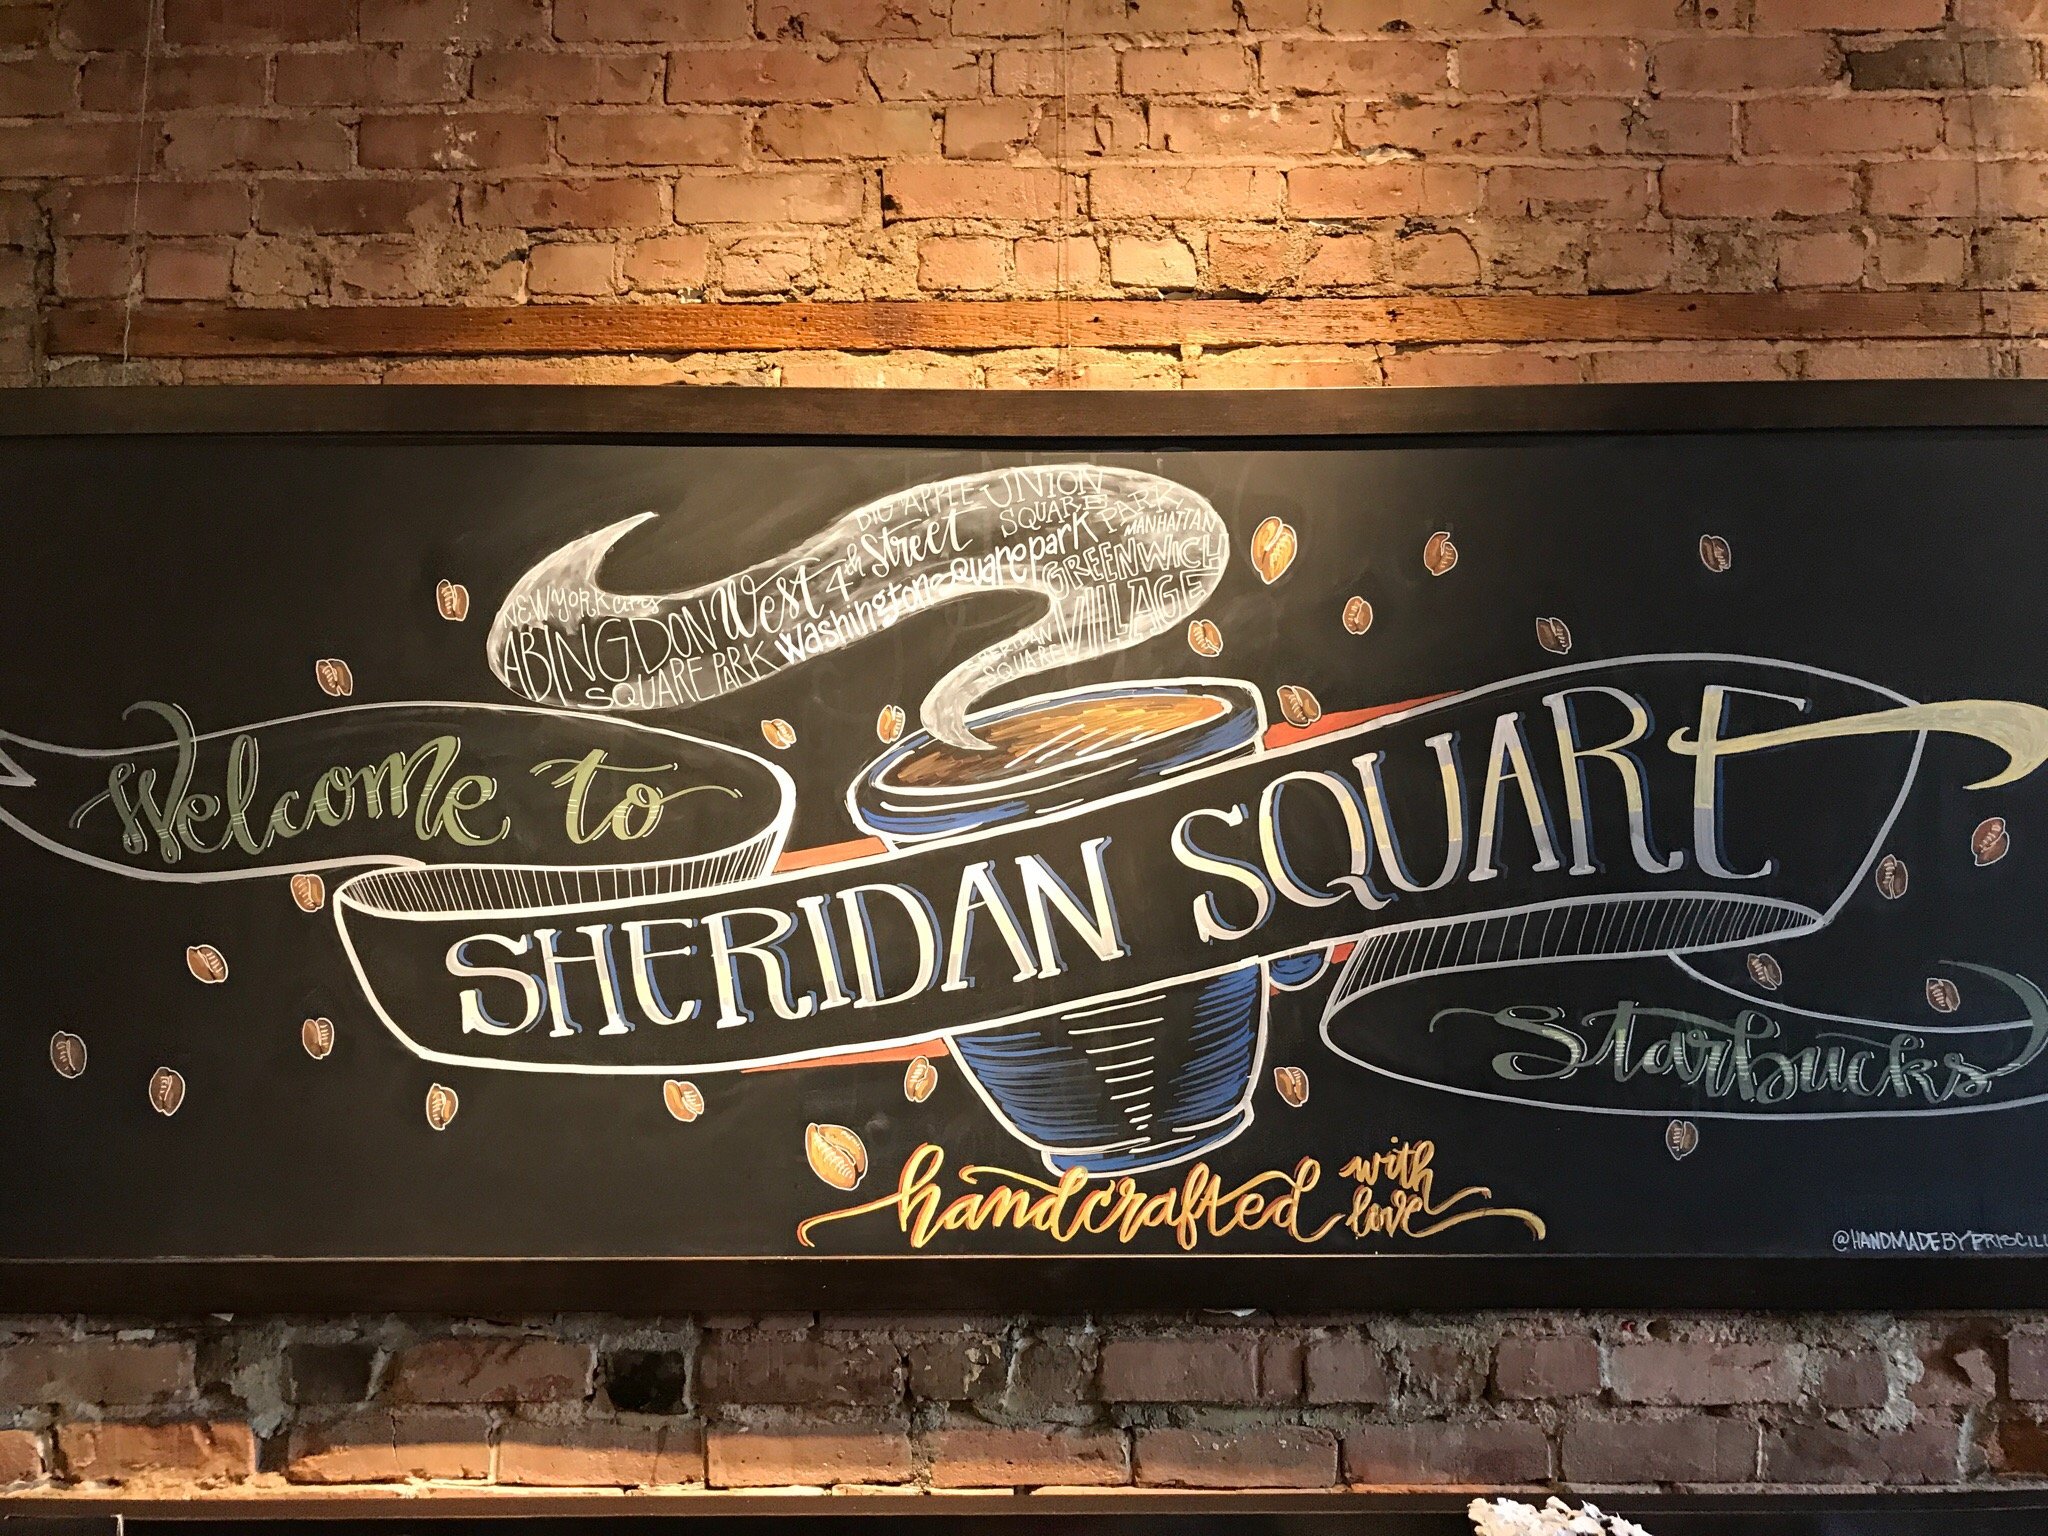 BIG APPLE
UNION
SQUARE PARK
NEW YORK CITY
West 4th Street
MANHATTAN
ABINGDON
SQUARE PARK
Washington square park
GREENWICH
VILLAGE
SHERIDAN
SQUARE
Welcome to
SHERIDAN SQUARE
Starbucks
handcrafted with
love
@HANDMADEBYPRISCILL